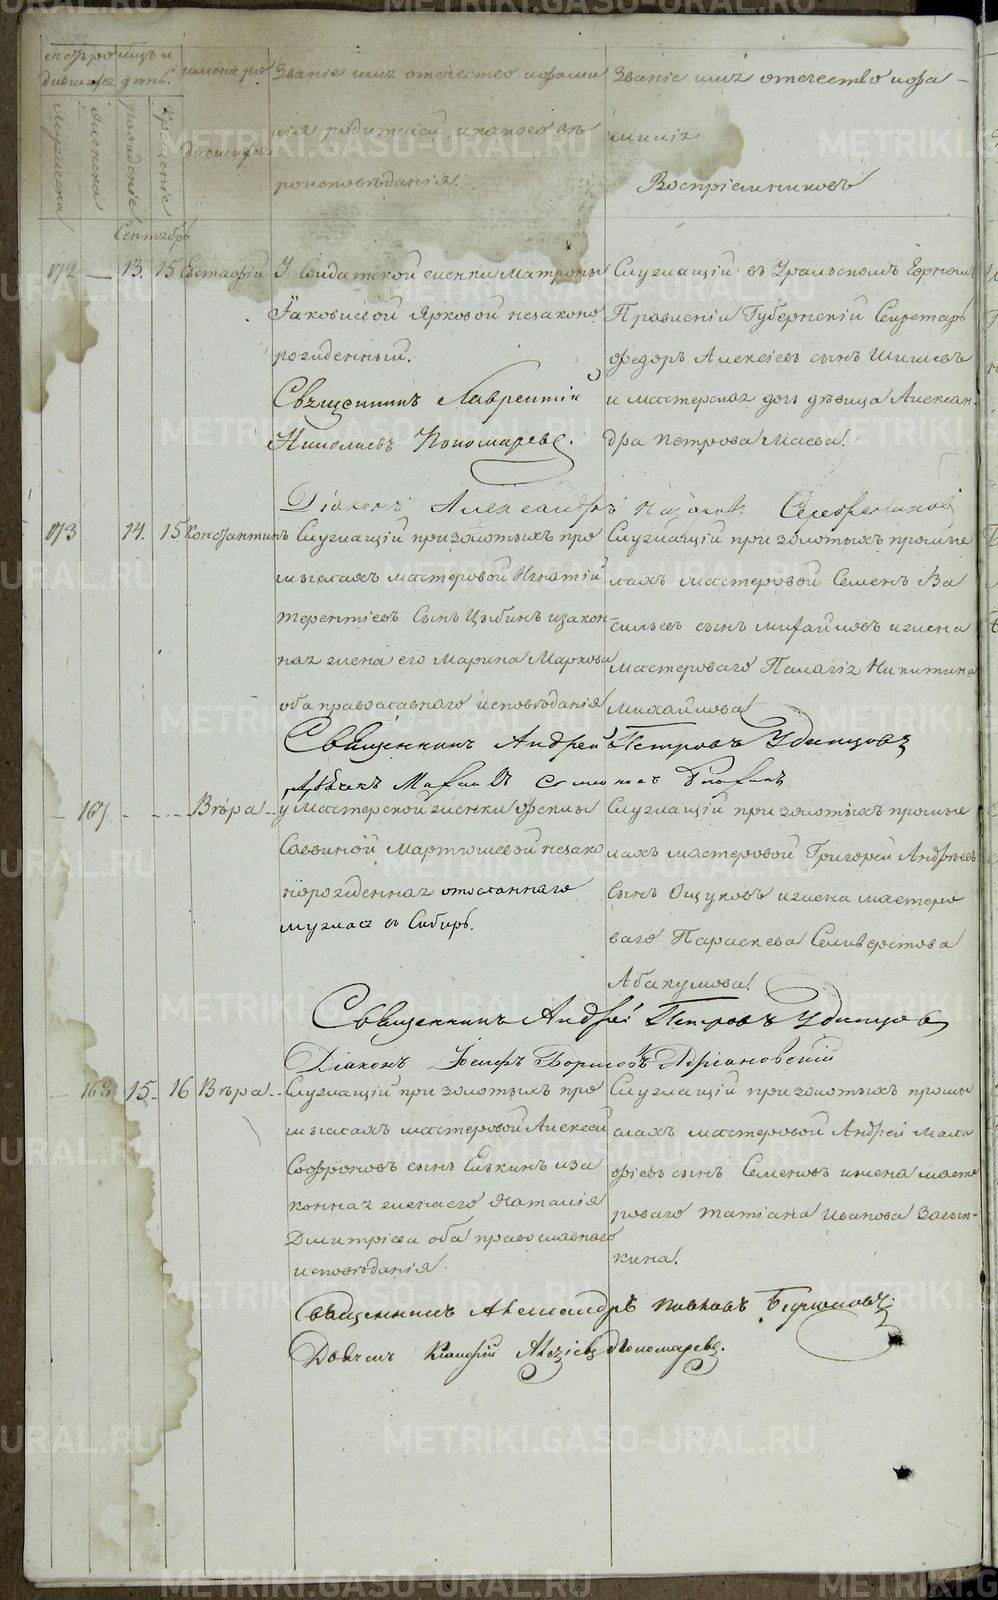 Счетъ родившихся
мѣсяцъ и день
имена родившихся
Званіе имя отечество и фами
лія родителей, и какого вѣ
роисповѣданія.
Званіе имя отечество и фа
милія
Воспріемниковъ
мужеска
женска
рожденіе
крещеніе
Сентябрь
172 — 13. 15 Евстафій
У Солдатской женки Матроны
Іаковлевой Ярковой незаконо
рожденный.
Священникъ Лаврентій
Николаевъ Пономаревъ.
Служащій въ Уральскомъ Горномъ
Правленіи Губернскій Секретарь
Федоръ Алексѣевъ сынъ Шишевъ
и мастерская дочь дѣвица Алексан
дра Петрова Маева.
Діаконъ Александръ
173 14. 15 Константинъ
Служащій при золотыхъ про
мыслахъ мастеровой Игнатій
Терентіевъ Сынъ Цыбинъ и закон
ная жена его Марина Маркова
оба православнаго исповѣданія
Служащій при золотыхъ промыс
лахъ мастеровой Семенъ Ва
сильевъ сынъ Михайловъ и жена
мастероваго Палагія Никитина
Михайлова
Священникъ Андрей Петровъ Удинцовъ
— 167 Вѣра
у мастерской женки Феклы
Саввиной Мартюшевой незако
норожденная отосланнаго
мужа въ Сибирь.
Служащій при золотыхъ промыс
лахъ мастеровой Григорей Андрѣевъ
Сынъ Ощуковъ и жена мастеро
ваго Параскева Селиверстова
Абакумова.
Священникъ Андрей Петровъ Удинцовъ
Діаконъ Іосифъ Борисовъ Адріановскій
— 168 15. 16 Вѣра
Служащій при золотыхъ про
мыслахъ мастеровой Алексей
Софроновъ сынъ Елькинъ и за
конная жена его Наталія
Дмитріева оба православнаго
исповѣданія.
Служащій при золотыхъ промы
слахъ мастеровой Андрей Мала
фіевъ сынъ Семеновъ и жена масте
роваго Татіана Иванова Засып-
кина.
Священникъ Александръ Павловъ
Дьячекъ Алексіевъ Пономаревъ.
METRIKI.GASO-URAL.RU